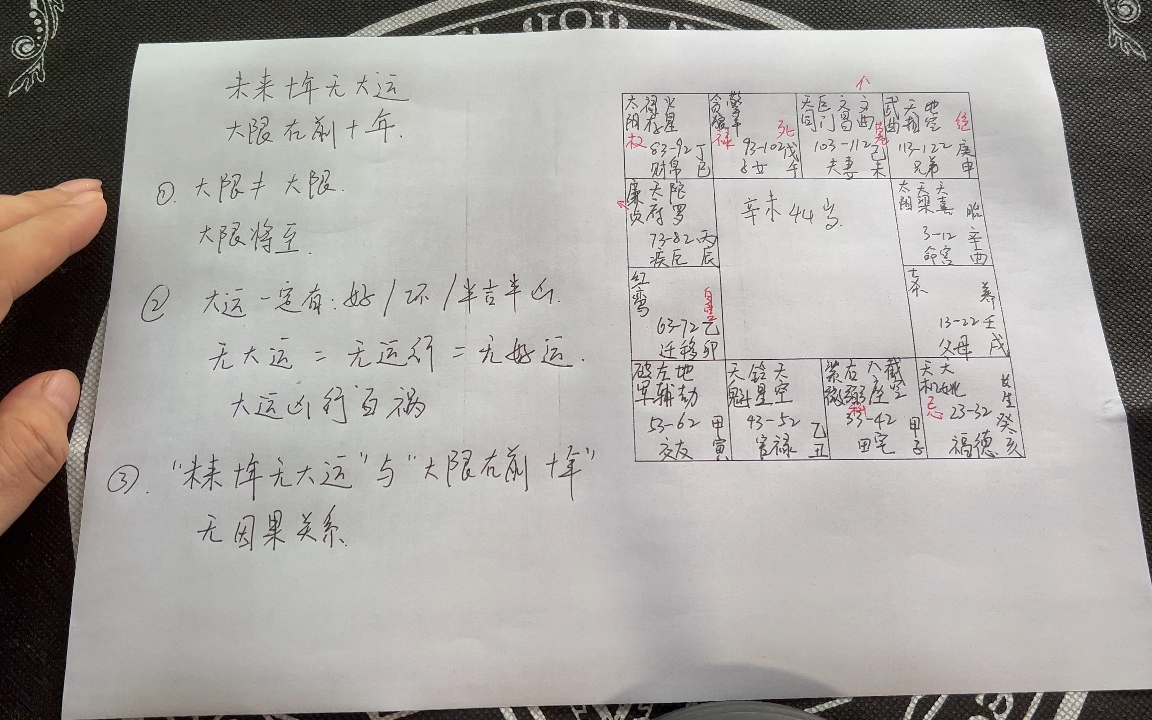 未来十年无大运
大限在前十年.
①. 大限≠大限.
大限将至.
② 大运一定有:好/坏/半吉半凶.
无大运=无运行=无好运.
大运凶行百祸
③. “未来十年无大运”与“大限在前十年”
无因果关系.
太阳 禄存 火星
权
83-92 丁
财帛 巳
贪狼 擎羊
禄 死
93-102 戊
子女 午
天同 巨门 文昌 文曲
墓
103-112 乙
夫妻 未
武曲 天相 地空
绝
113-122 庚
兄弟 申
廉贞 天府 陀罗
73-82 丙
疾厄 辰
辛未 44岁.
太阴 天梁 天喜
胎
3-12 辛
命宫 酉
红鸾
63-72 乙
迁移 卯
养
13-22 壬
父母 戌
破军 左辅 地劫
53-62 甲
交友 寅
天魁 铃星 天空
43-52 乙
官禄 丑
紫微 右弼 八座 截空
科
33-42 甲
田宅 子
天机 天姚
忌
长生
23-32 癸
福德 亥